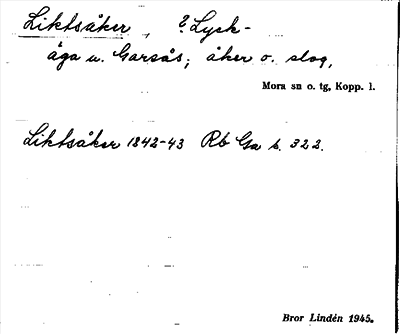 Liktsåker, ? Lysk-
åga u. Garsås; åker o. slog,
Mora sn o. tg, Kopp. l.
Liktsåker 1842-43 Rb Ga s. 322.
Bror Lindén 1945.